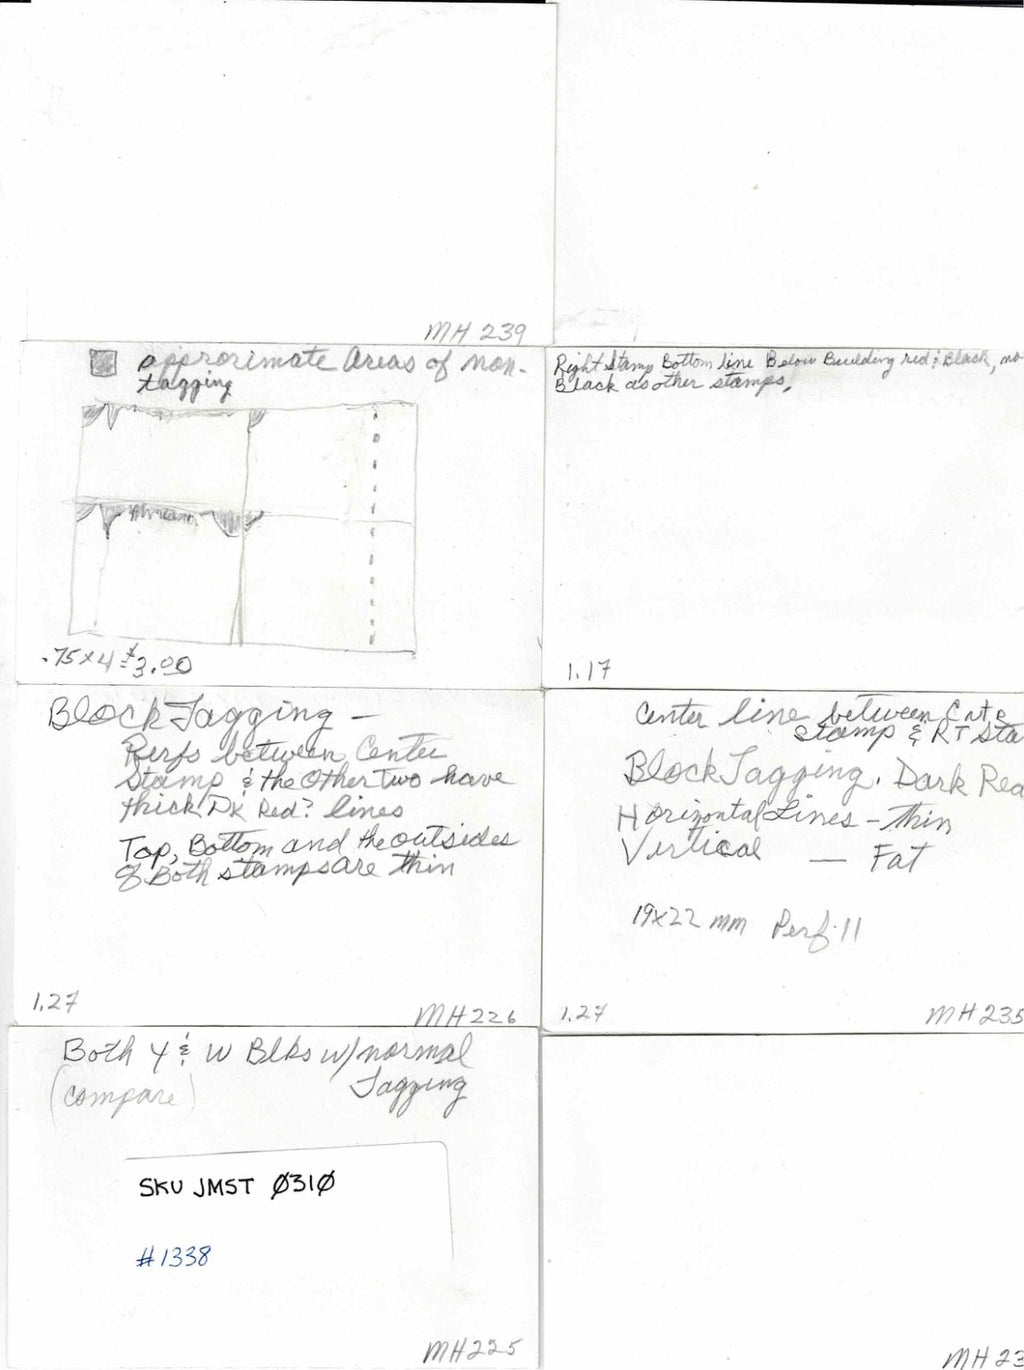 MH 239
approximate areas of non-
tagging
.75 x 4 = $3.00
Right Stamp Bottom line Below Building red & Black, no
Black as other stamps,
1.17
Block Tagging —
Perfs between Center
Stamp & the Other Two have
thick Dk Red? lines
Top, Bottom and the outsides
of Both stamps are thin
1.27
MH 226
Center line between Cnte
stamp & RT Sta
Block Tagging. Dark Red
Horizontal Lines - thin
Vertical — Fat
19x22 mm Perf. 11
1.27
MH 235
Both Y & W Blks w/normal
(compare) Tagging
SKU JMST Ø31Ø
#1338
MH 225
MH 23